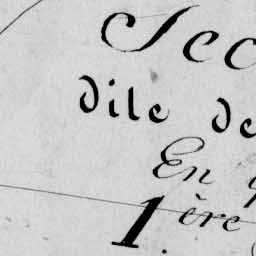 Sec
dite de
En
1.ère